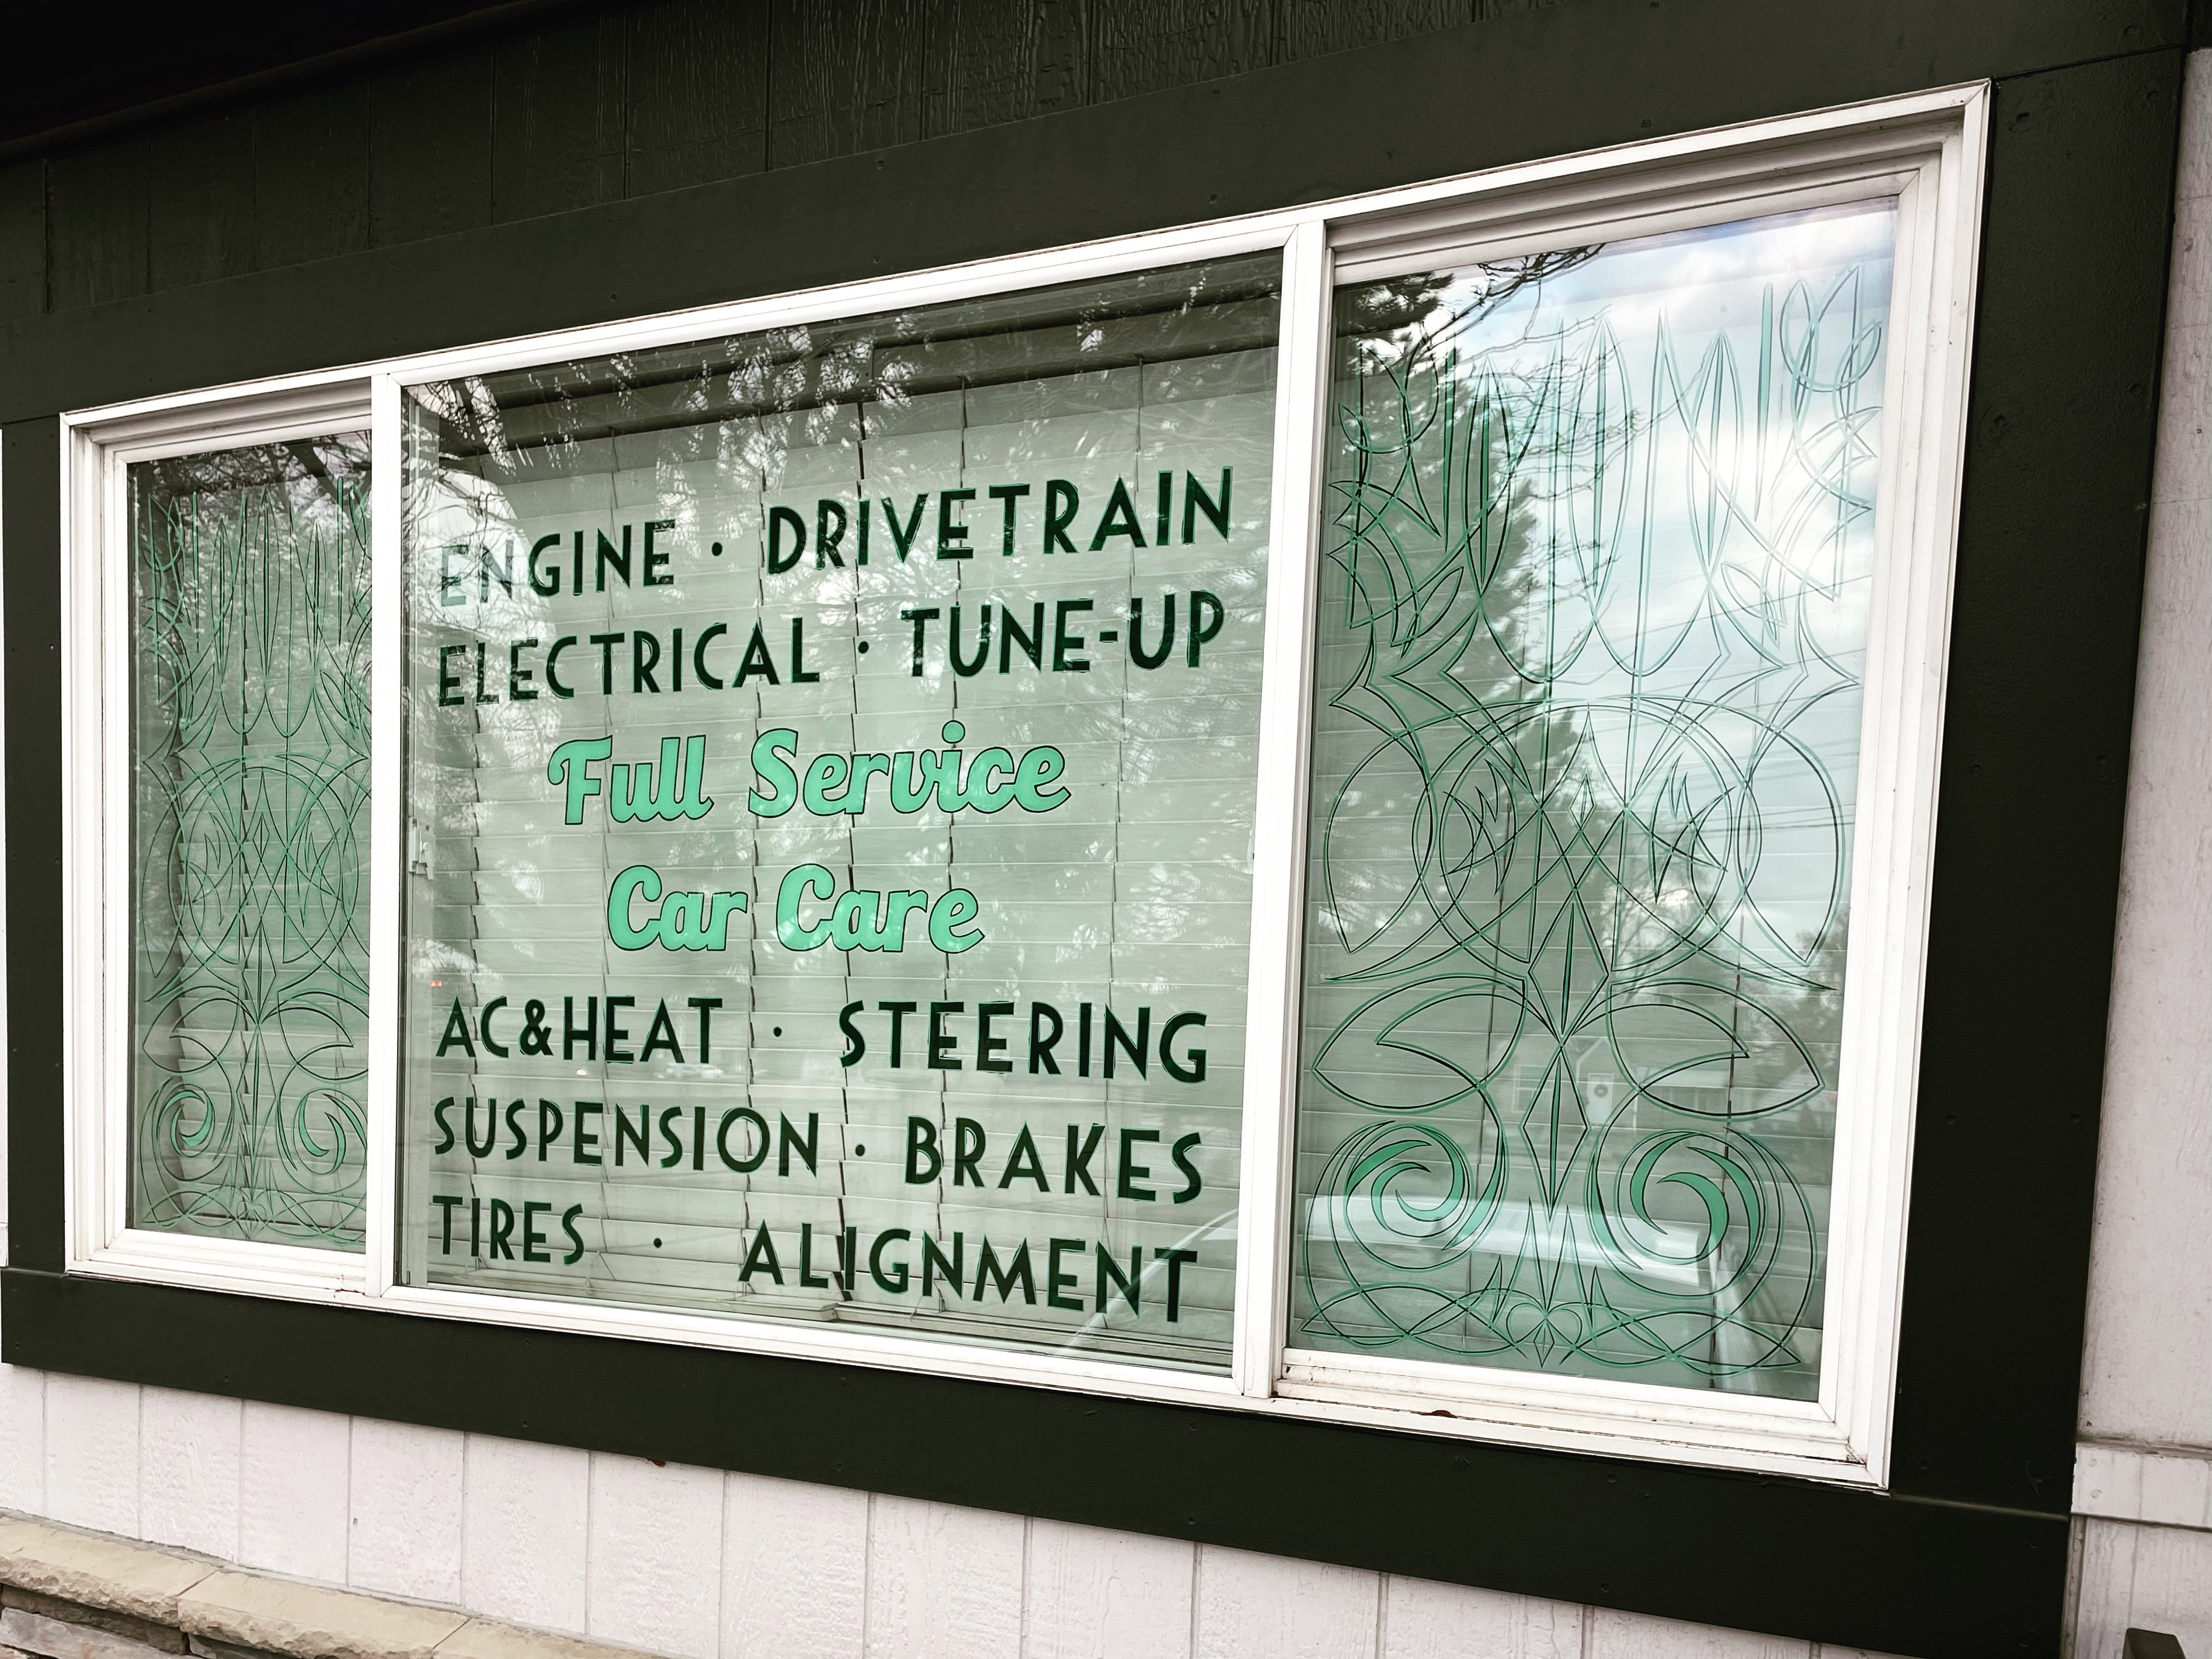 ENGINE · DRIVETRAIN
ELECTRICAL · TUNE-UP
Full Service
Car Care
AC&HEAT · STEERING
SUSPENSION · BRAKES
TIRES · ALIGNMENT